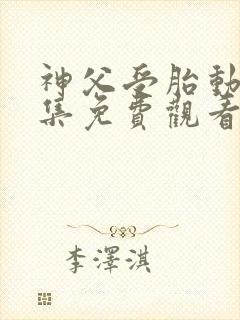 神父受胎動
集免費觀看
李澤淇